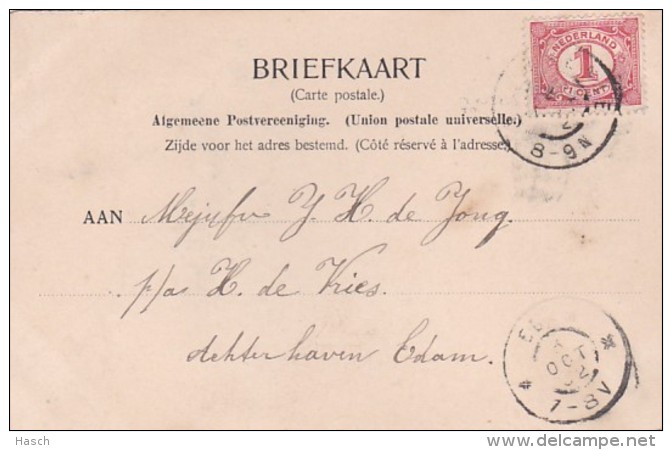 NEDERLAND
1
CENT
8-9N
BRIEFKAART
(Carte postale.)
Algemeene Postvereeniging. (Union postale universelle.)
Zijde voor het adres bestemd. (Côté réservé à l'adresse)
AAN Mejufvr J. H. de Jong.
p/a H. de Vries.
Achterhaven Edam.
OCT
7-8V
Hasch
delcampe.net